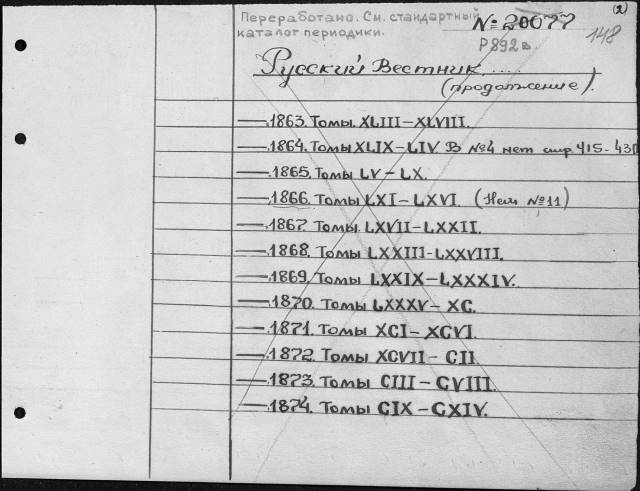 (2)
Переработано. См. стандартный
каталог периодики.
№ 20077
Р892в
148
Русский Вестник.....
(продолжение).
—1863. Томы. XLIII–XLVIII.
—1864. Томы XLIX–LIV. В №4 нет стр 415-43
—1865. Томы LV–LX.
—1866. Томы LXI–LXVI. (Нет №11)
—1867. Томы. LXVII–LXXII.
—1868. Томы LXXIII–LXXVIII.
—1869. Томы LXXIX–LXXXIV.
—1870. Томы LXXXV–XC.
—1871. Томы XCI–XCVI.
—1872. Томы XCVII–CII.
—1873. Томы CIII–CVIII.
—1874. Томы CIX–CXIV.